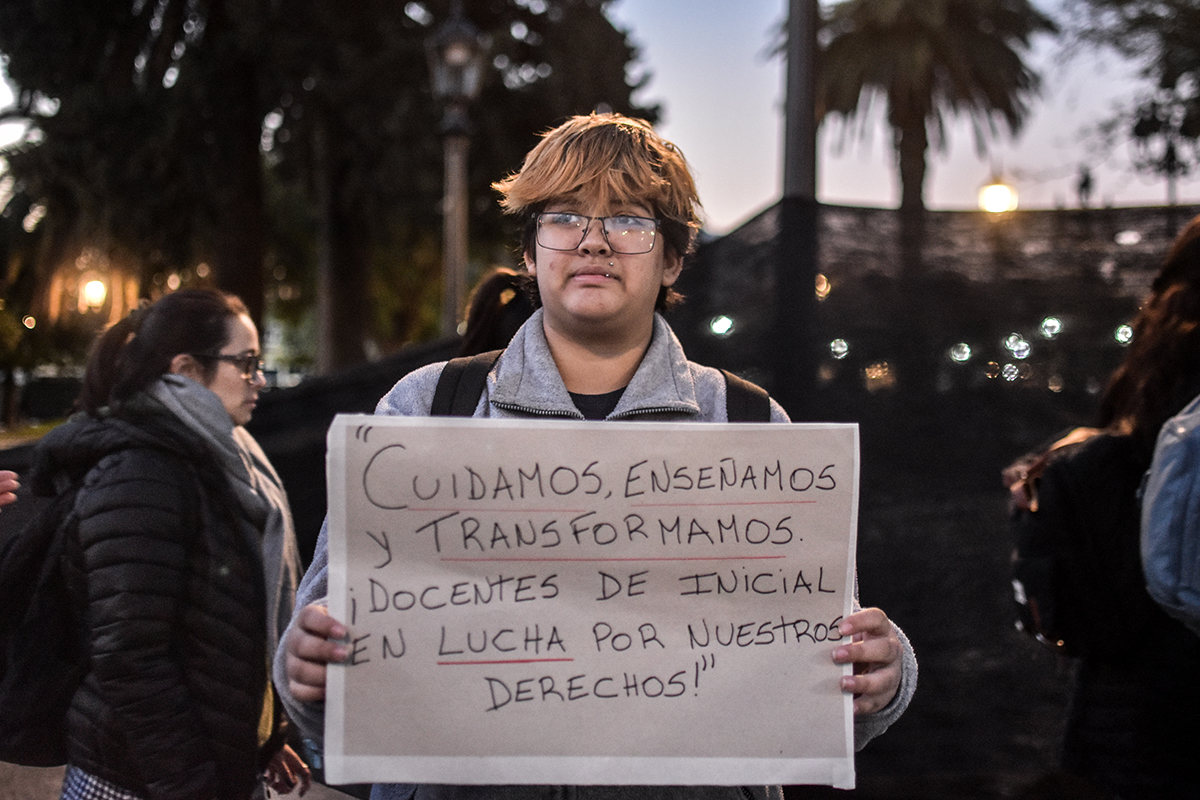 "CUIDAMOS, ENSEÑAMOS
y TRANSFORMAMOS.
¡DOCENTES DE INICIAL
EN LUCHA POR NUESTROS
DERECHOS!"